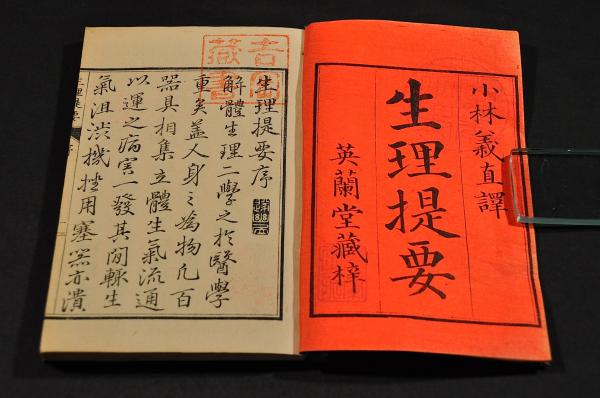 小林義直譯
生理提要
英蘭堂藏梓
生理提要序
解體生理二學之於醫學
重矣蓋人身之為物凡百
器具相集立體生氣流通
以運之病害一發其閒輒生
氣沮澁機挫用塞器亦潰